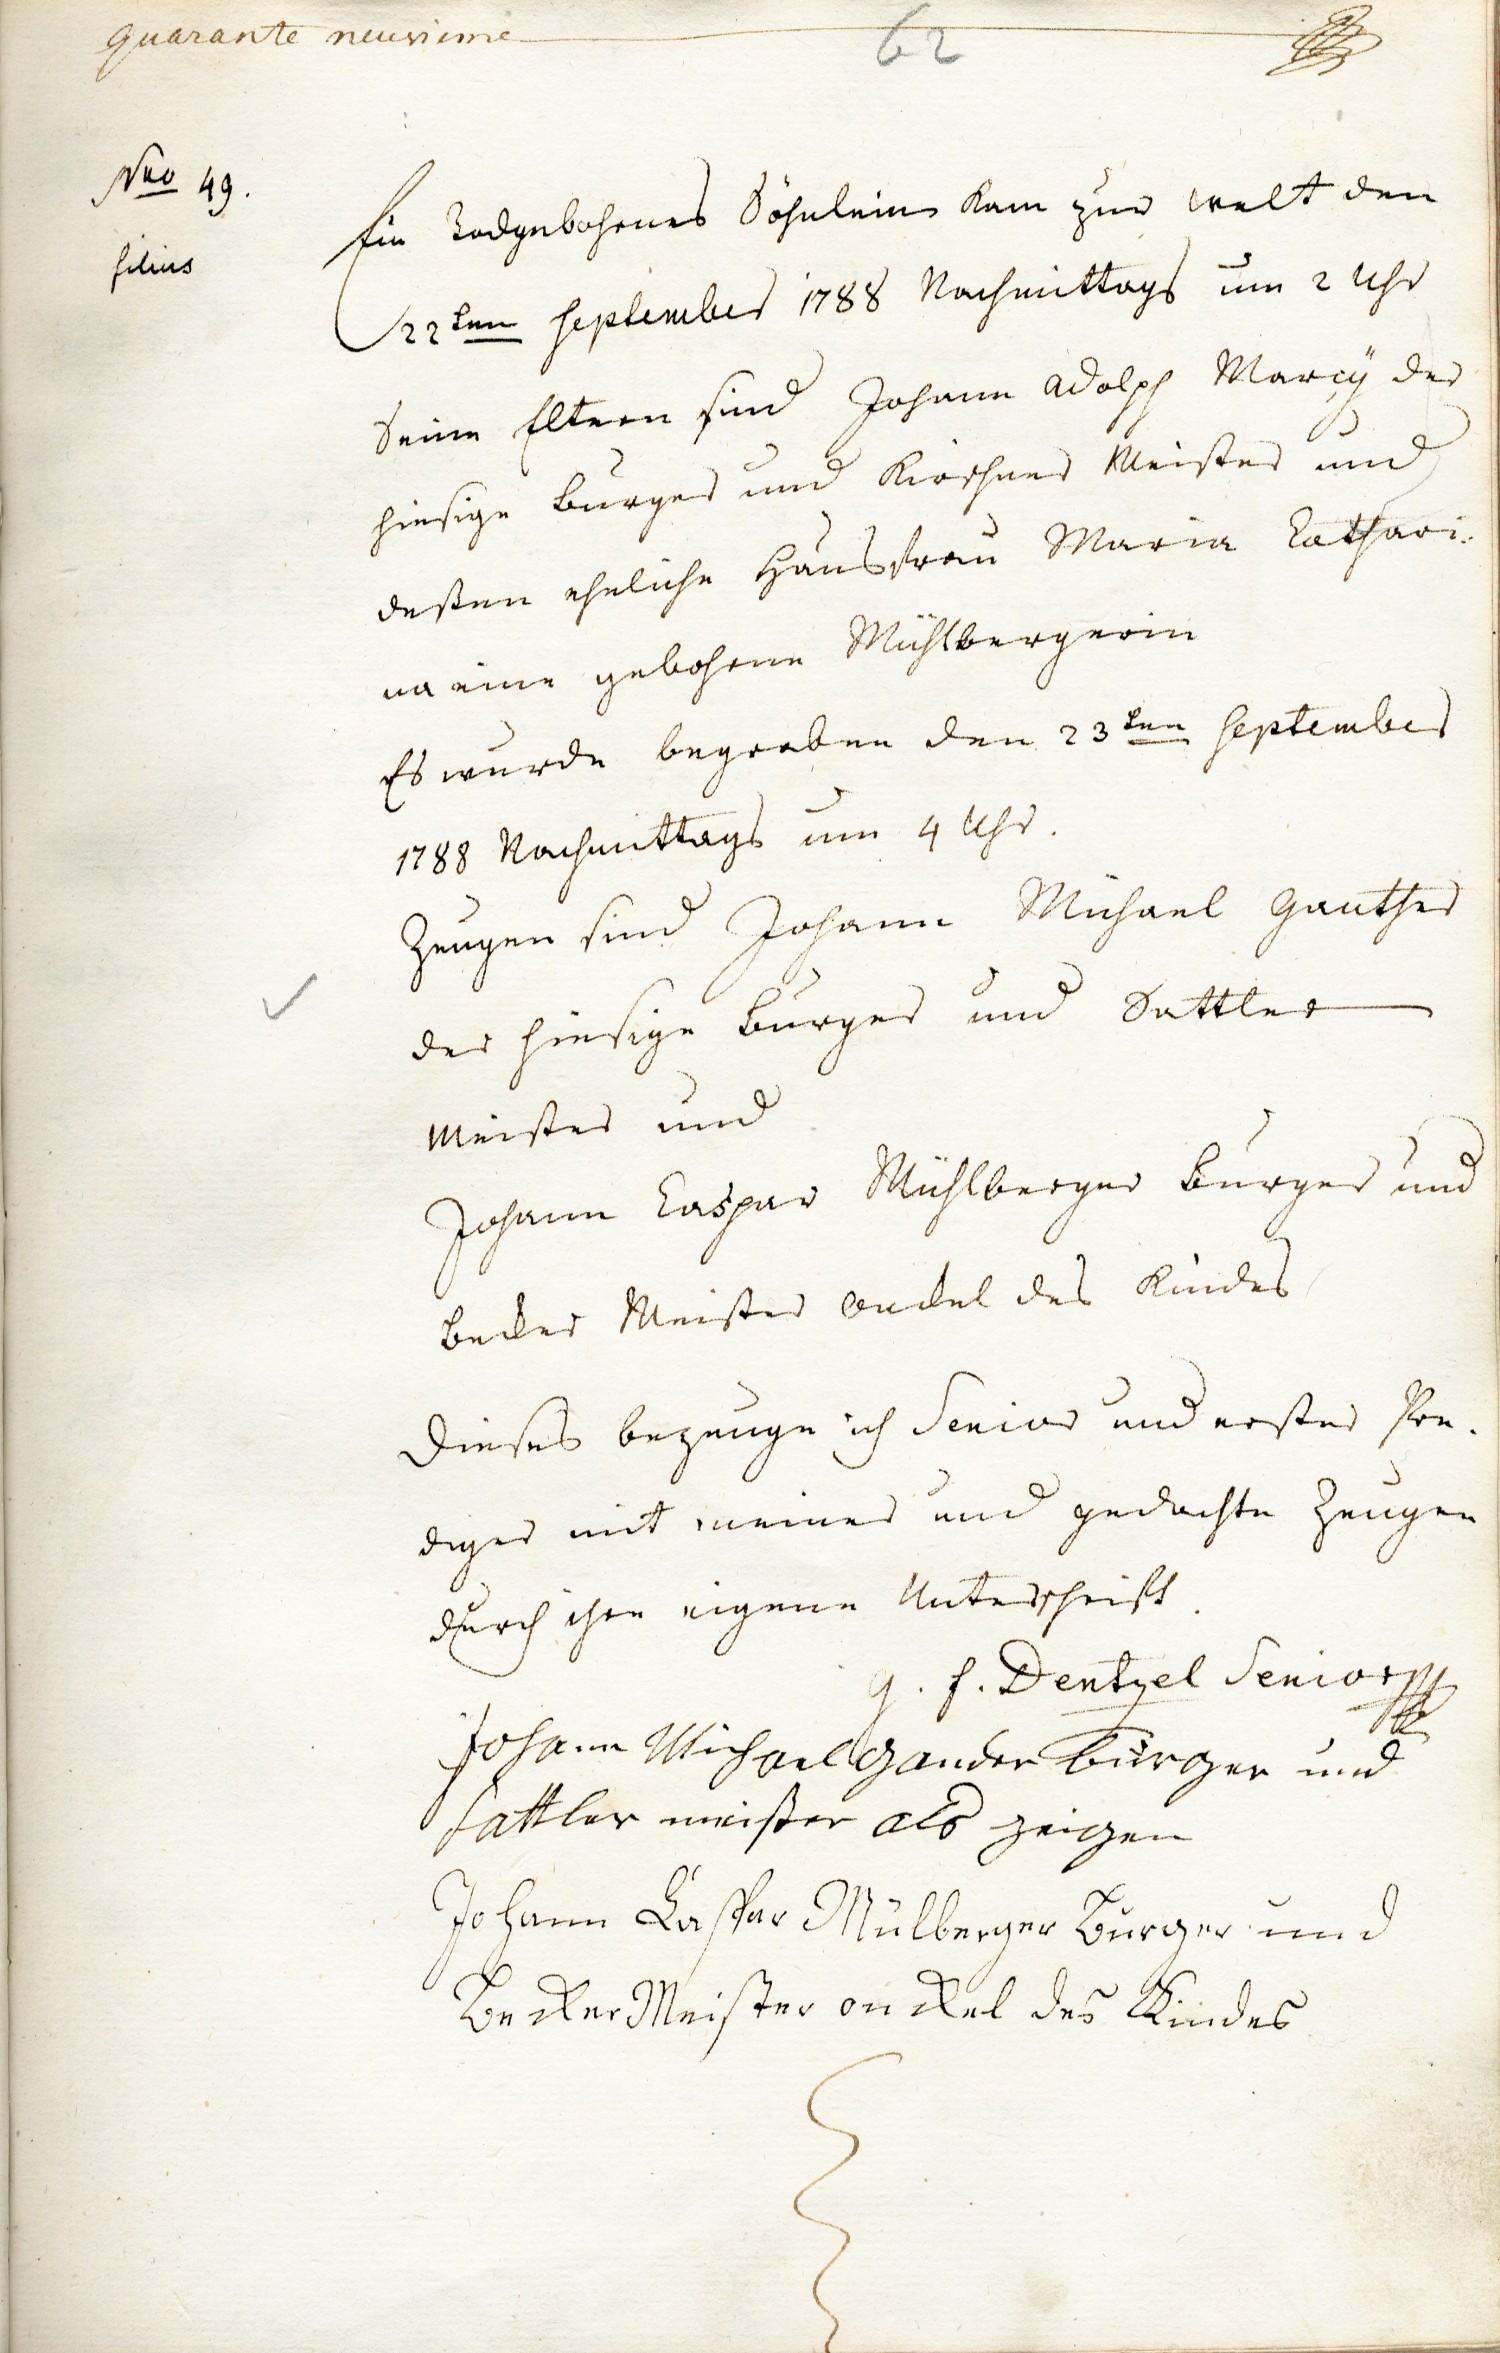 quarante neuvieme
62
Nro 49.
filius
Ein Todgebohrnes Söhnlein kam zur Welt den
22ten September 1788 Nachmittags um 2 Uhr
Seine Eltern sind Johann Adolph Marcÿ der
hiesige Burger und Kirschner Meister und
deßen eheliche Hausfrau Maria Cathari-
na eine gebohrne Mühlbergerin
Es wurde begraben den 23ten September
1788 Nachmittags um 4 Uhr.
Zeugen sind Johann Michael Ganther
der hiesige Burger und Sattler
Meister und
Johann Caspar Mühlberger Burger und
Becker Meister Onckel des Kindes
Dieses bezeuge ich Senior und erster Pre-
diger mit meiner und gedachte Zeugen
durch ihre eigene Unterschrift.
g. f. Dentzel Senior
Johann Michael Gander burger und
sattler meister als zeigen
Johann Caspar Mülberger Burger und
Becker Meister onckel des Kindes